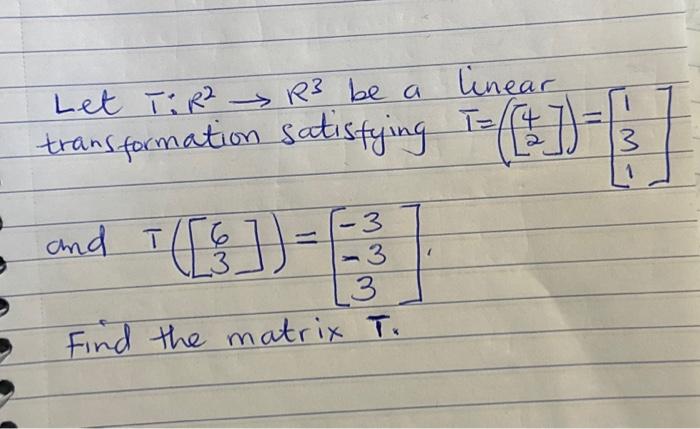 Let T: R² → R³ be a linear
transformation satisfying T=([4 2])=[1 3 1]
and T([6 3])=[-3 -3 3].
Find the matrix T.